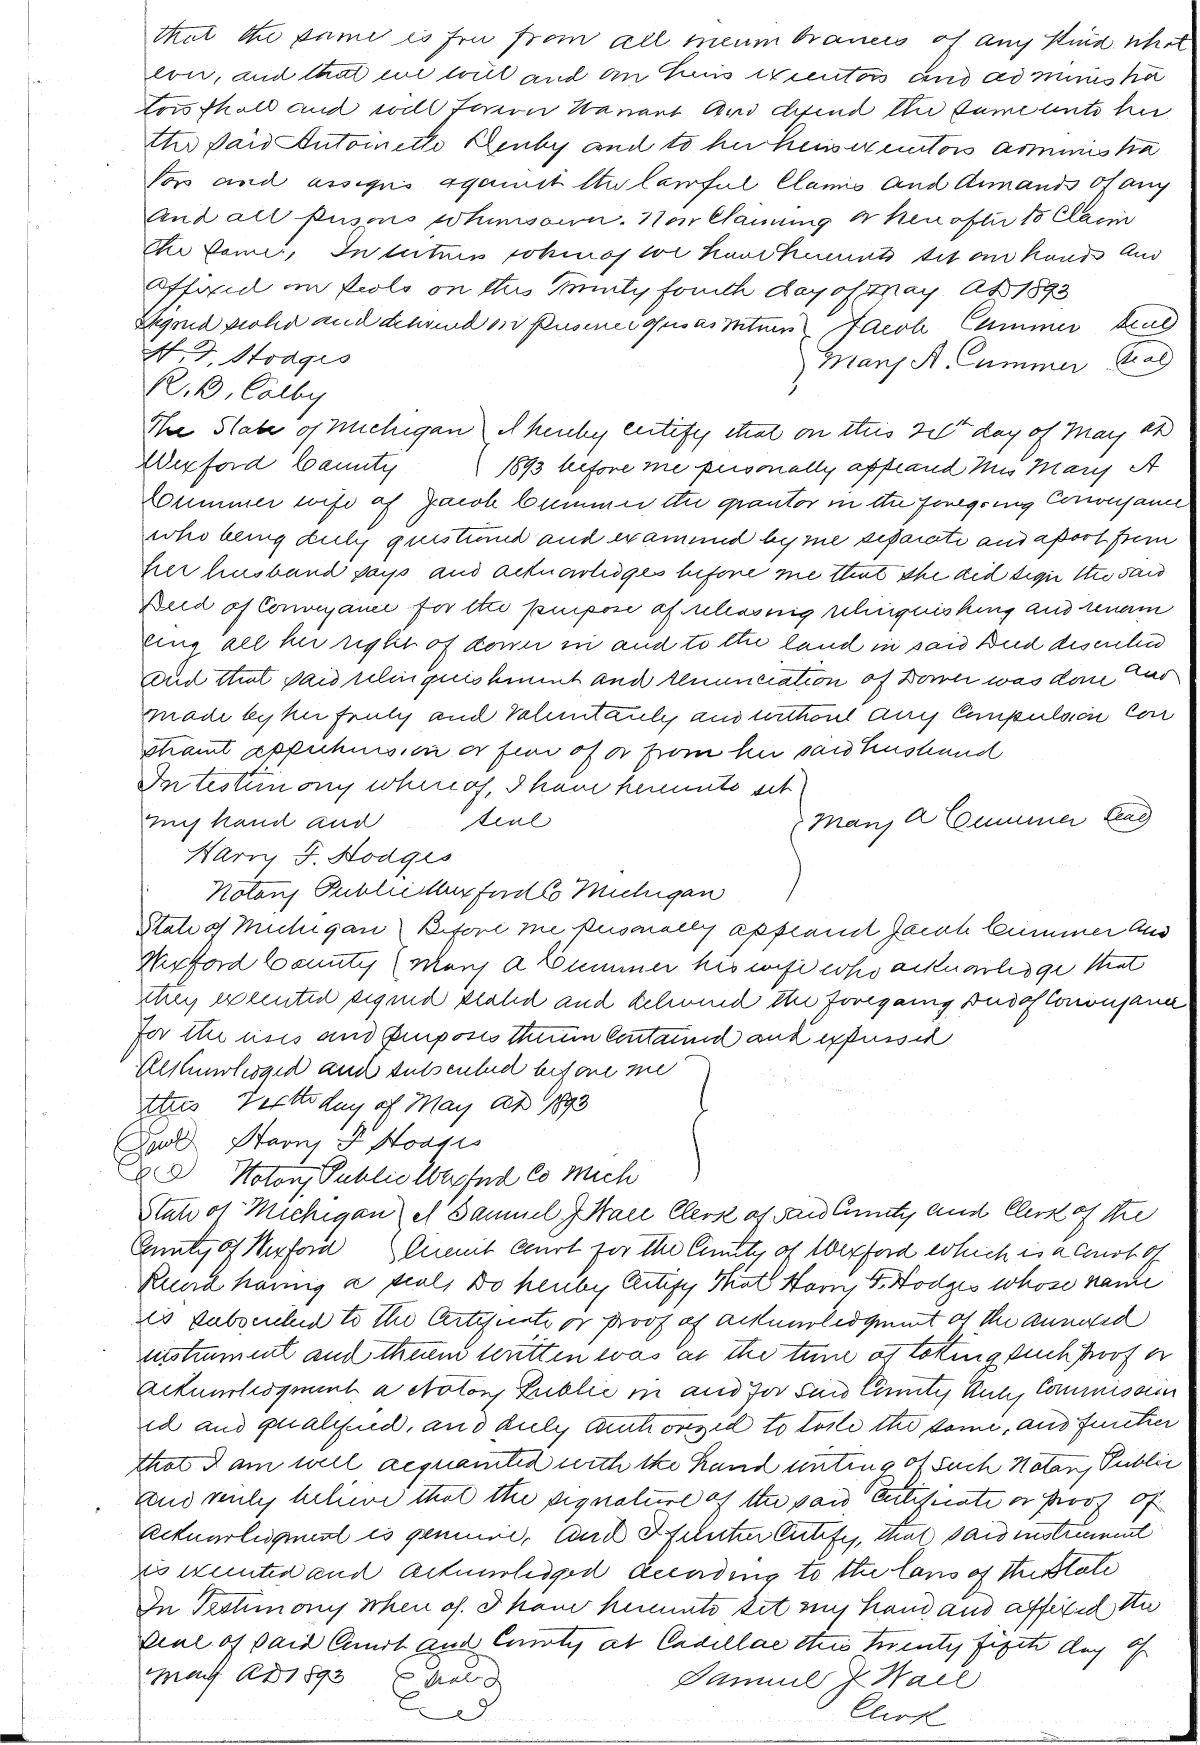 that the same is free from all incumbrances of any Kind what
ever, and that we will and our heirs executors and administra
tors shall and will forever Warrant And defend the same unto her
the said Antoinette Denby and to her heirs executors administra
tors and assigns against the lawful Claims and demands of any
and all persons whomsoever. Now Claiming or here after to Claim
the same, In witness whereof we have hereunto set our hands and
affixed our seals on this Twenty fourth day of May AD 1893
Signed sealed and delivered in presence of us as witness } Jacob Cummer Seal
H. F. Hodges } Mary A. Cummer Seal
R. B. Colby
The State of Michigan } I hereby certify that on this 24th day of May AD
Wexford County } 1893 before me personally appeared Mrs Mary A
Cummer wife of Jacob Cummer the grantor in the foregoing Conveyance
who being duly questioned and examined by me separate and apart from
her husband says and acknowledges before me that she did sign the said
Deed of Conveyance for the purpose of releasing relinquishing and renoun
cing all her right of dower in and to the land in said Deed described
and that said relinquishment and renunciation of Dower was done and
made by her freely and Voluntarily and without any Compulsion Con
straint apprehension or fear of or from her said husband
In testimony whereof, I have hereunto set }
my hand and seal } Mary A Cummer Seal
Harry F. Hodges
Notary Public Wexford Co Michigan
State of Michigan } Before me personally appeared Jacob Cummer and
Wexford County } Mary A Cummer his wife who acknowledge that
they executed signed sealed and delivered the foregoing Deed of Conveyance
for the uses and purposes therein Contained and expressed
Acknowledged and subscribed before me
this 24th day of May AD 1893
Seal Harry F Hodges
Notary Public Wexford Co Mich
State of Michigan } I Samuel J Wall Clerk of said County and Clerk of the
County of Wexford } Circuit Court for the County of Wexford which is a Court of
Record having a seal, Do hereby Certify That Harry F. Hodges whose name
is subscribed to the Certificate or proof of acknowledgment of the annexed
instrument and therein written was at the time of taking such proof or
acknowledgment a Notary Public in and for said County duly Commission
ed and qualified, and duly authorized to take the same, and further
that I am well acquainted with the hand writing of such Notary Public
and verily believe that the signature of the said Certificate or proof of
acknowledgment is genuine, And I further Certify, that said instrument
is executed and acknowledged according to the laws of the State
In Testimony Where of. I have hereunto set my hand and affixed the
seal of said Court and County at Cadillac this twenty fifth day of
May AD 1893 Seal Samuel J Wall
Clerk